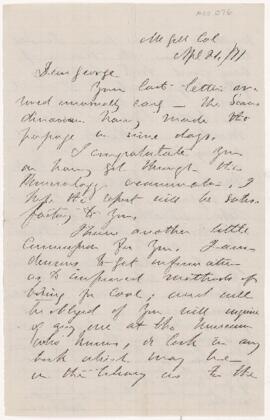 McGill Col
Apl 21, /71
Dear George
Your last letter arr
ived unusually early — the Scan
dinavian having made the
passage in nine days.
I congratulate you
on having got through the
Mineralogy examination. I
hope the report will be satis
factory to you.
I have another little
commission for you. I am
desirous to get information
as to improved methods of
boring for coal; and will
be obliged if you will inquire
if any one at the Museum
who knows, or look in any
book which may be
in the library as to the